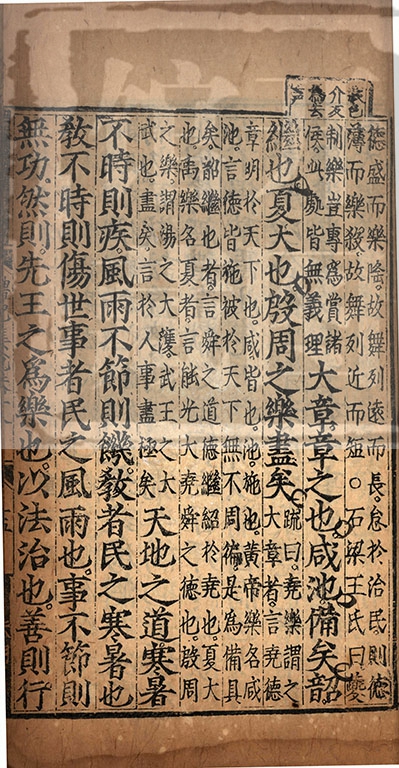 德盛而樂隆故舞列遠而長怠於治民則德
薄而樂殺故舞列近而短○石梁王氏曰夔
制樂豈專爲賞諸
侯此處皆無義理
大章章之也咸池備矣韶
繼也夏大也殷周之樂盡矣
疏曰堯樂謂之
大章者言堯德
章明於天下也咸皆也池施也黃帝樂名咸
池言德皆施被於天下無不周徧是爲備具
矣韶繼也者言舜之道德繼紹於堯也夏大
也禹樂名夏者言能光大堯舜之德也殷周
之樂謂湯之大濩武王之大
武也盡矣言於人事盡極矣
天地之道寒暑
不時則疾風雨不節則饑教者民之寒暑也
教不時則傷世事者民之風雨也事不節則
無功然則先王之爲樂也以法治也善則行